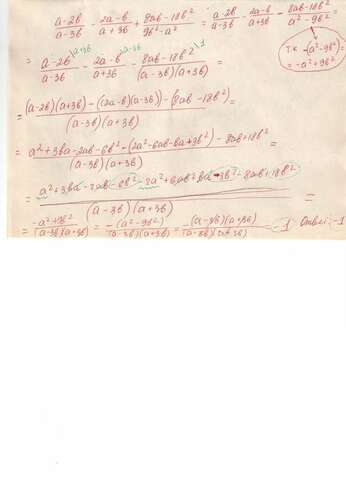 a-2b/a-3b - 2a-b/a+3b + 8ab-18b²/9b²-a² = a-2b/a-3b - 2a-b/a+3b - 8ab-18b²/a²-9b² =
т.к -(a²-9b²)= = -a²+9b²
= a-2b/a-3b |a+3b - 2a-b/a+3b |a-3b - 8ab-18b²/(a-3b)(a+3b) |1 =
= (a-2b)(a+3b)-((2a-b)(a-3b))-(8ab-18b²)/(a-3b)(a+3b) =
= a²+3ba-2ab-6b²-(2a²-6ab-ba+3b²)-8ab+18b²/(a-3b)(a+3b) =
= a²+3ba-2ab-6b²-2a²+6ab+ba-3b²-8ab+18b²/(a-3b)(a+3b) =
= -a²+9b²/(a-3b)(a+3b) = -(a²-9b²)/(a-3b)(a+3b) = -(a-3b)(a+3b)/(a-3b)(a+3b) = -1 Ответ: -1